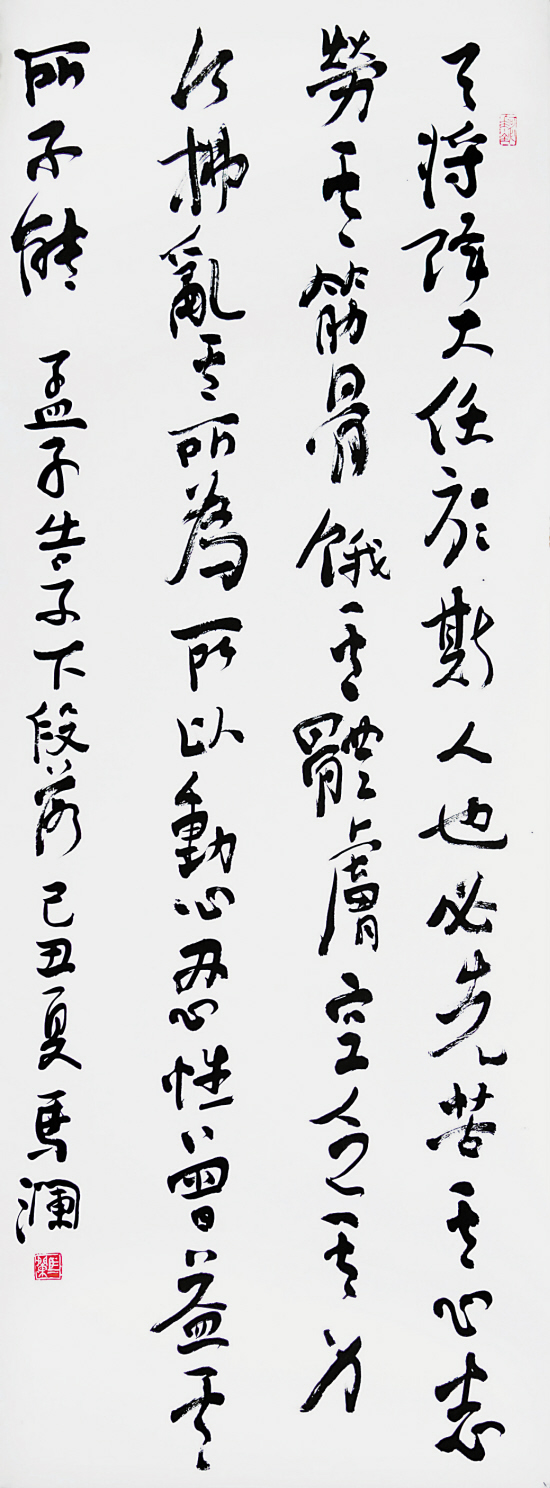 天将降大任於斯人也必先苦其心志
劳其筋骨饿其體膚空乏其身
行拂亂其所為所以動心忍性曾益其
所不能 孟子告子下段落 己丑夏 馬瀾